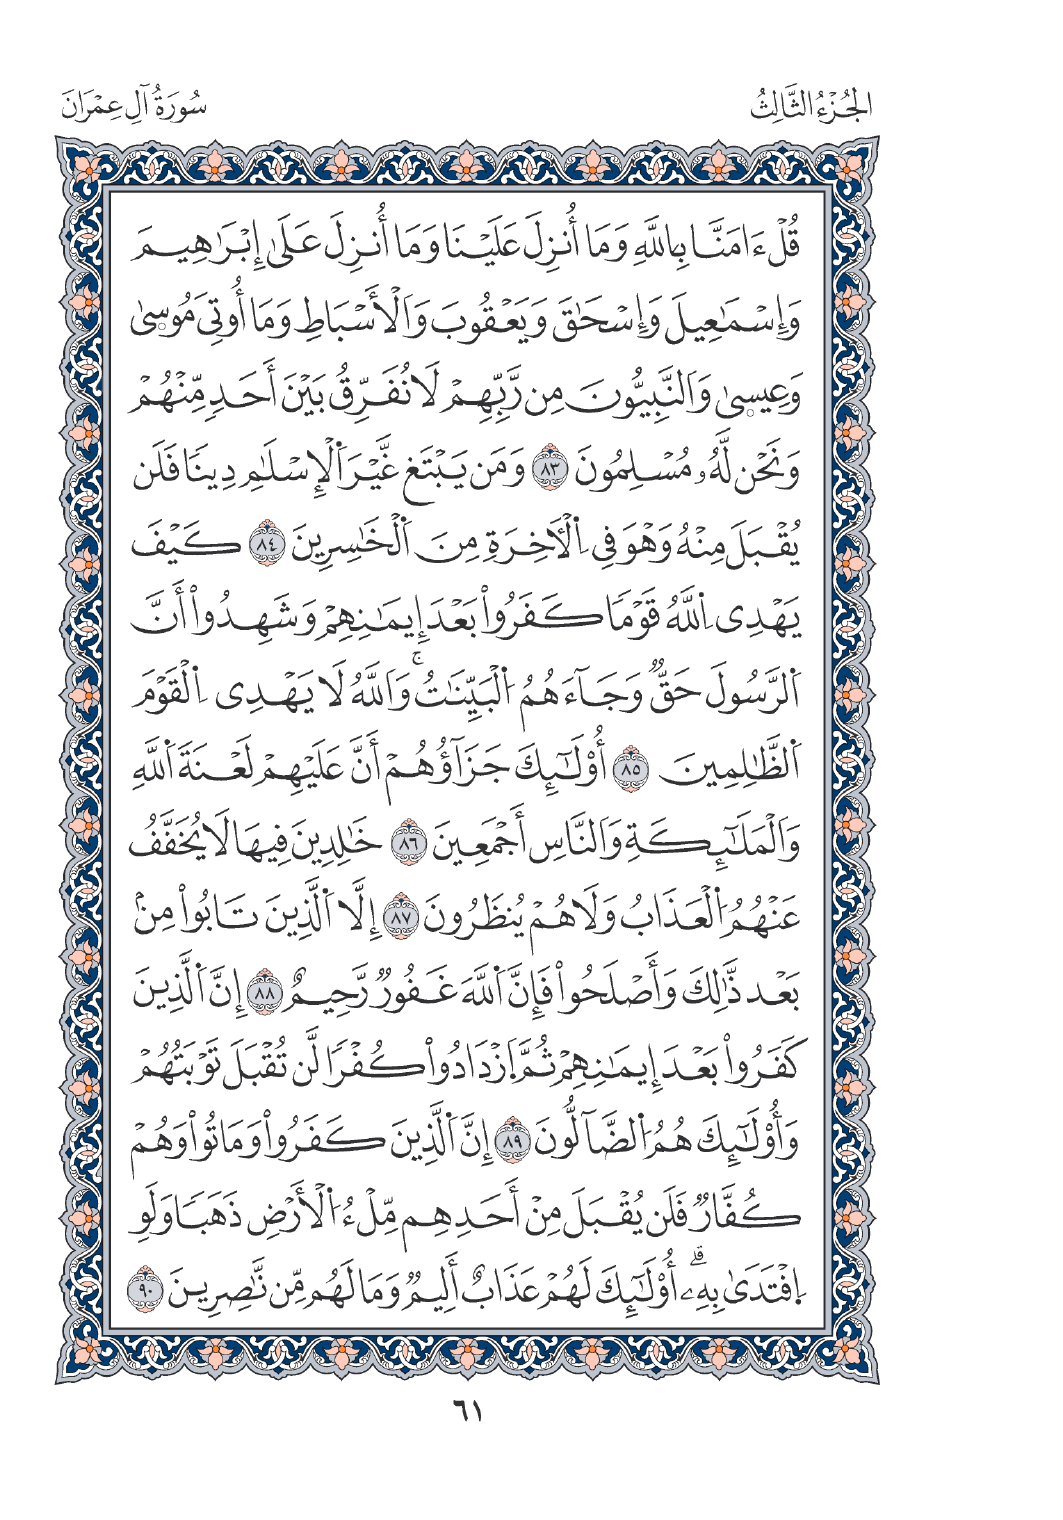 الجُزْءُ الثَّالِثُ
سُورَةُ آلِ عِمْرَانَ
قُلْ ءَامَنَّا بِاللَّهِ وَمَا أُنزِلَ عَلَيْنَا وَمَا أُنزِلَ عَلَىٰ إِبْرَٰهِيمَ
وَإِسْمَٰعِيلَ وَإِسْحَٰقَ وَيَعْقُوبَ وَالْأَسْبَاطِ وَمَا أُوتِيَ مُوسٜىٰ
وَعِيسٜىٰ وَالنَّبِيُّونَ مِن رَّبِّهِمْ لَا نُفَرِّقُ بَيْنَ أَحَدٍ مِّنْهُمْ
وَنَحْنُ لَهُۥ مُسْلِمُونَ ٨٣ وَمَن يَبْتَغِ غَيْرَ اَلْإِسْلَٰمِ دِينًا فَلَن
يُقْبَلَ مِنْهُ وَهْوَ فِي اِلْأَخِرَةِ مِنَ اَلْخَٰسِرِينَ ٨٤ كَيْفَ
يَهْدِي اِللَّهُ قَوْمًا كَفَرُواْ بَعْدَ إِيمَٰنِهِمْ وَشَهِدُواْ أَنَّ
اَلرَّسُولَ حَقٌّ وَجَآءَهُمُ اُلْبَيِّنَٰتُۚ وَاَللَّهُ لَا يَهْدِي اِلْقَوْمَ
اَلظَّٰلِمِينَ ٨٥ أُوْلَٰٓئِكَ جَزَآؤُهُمْ أَنَّ عَلَيْهِمْ لَعْنَةَ اَللَّهِ
وَاَلْمَلَٰٓئِكَةِ وَاَلنَّاسِ أَجْمَعِينَ ٨٦ خَٰلِدِينَ فِيهَا لَا يُخَفَّفُ
عَنْهُمُ اُلْعَذَابُ وَلَا هُمْ يُنظَرُونَ ٨٧ إِلَّا اَلَّذِينَ تَابُواْ مِنۢ
بَعْد ذَّٰلِكَ وَأَصْلَحُواْ فَإِنَّ اَللَّهَ غَفُورٌ رَّحِيمٌ ٨٨ إِنَّ اَلَّذِينَ
كَفَرُواْ بَعْدَ إِيمَٰنِهِمْ ثُمَّ اَزْدَادُواْ كُفْرًا لَّن تُقْبَلَ تَوْبَتُهُمْ
وَأُوْلَٰٓئِكَ هُمُ اُلضَّآلُّونَ ٨٩ إِنَّ اَلَّذِينَ كَفَرُواْ وَمَاتُواْ وَهُمْ
كُفَّارٌ فَلَن يُقْبَلَ مِنْ أَحَدِهِم مِّلْءُ اُلْأَرْضِ ذَهَبًا وَلَوِ
اِفْتَدَىٰ بِهِۦٓۗ أُوْلَٰٓئِكَ لَهُمْ عَذَابٌ أَلِيمٌ وَمَا لَهُم مِّن نَّٰصِرِينَ ٩٠
٦١